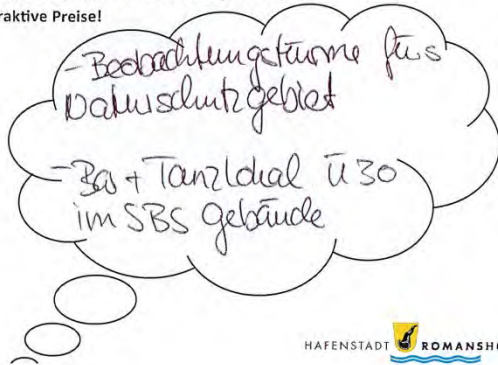 raktive Preise!
- Beobachtungstürme fürs
Naturschutzgebiet
- Bar + Tanzlokal Ü30
im SBS Gebäude
HAFENSTADT ROMANSHO